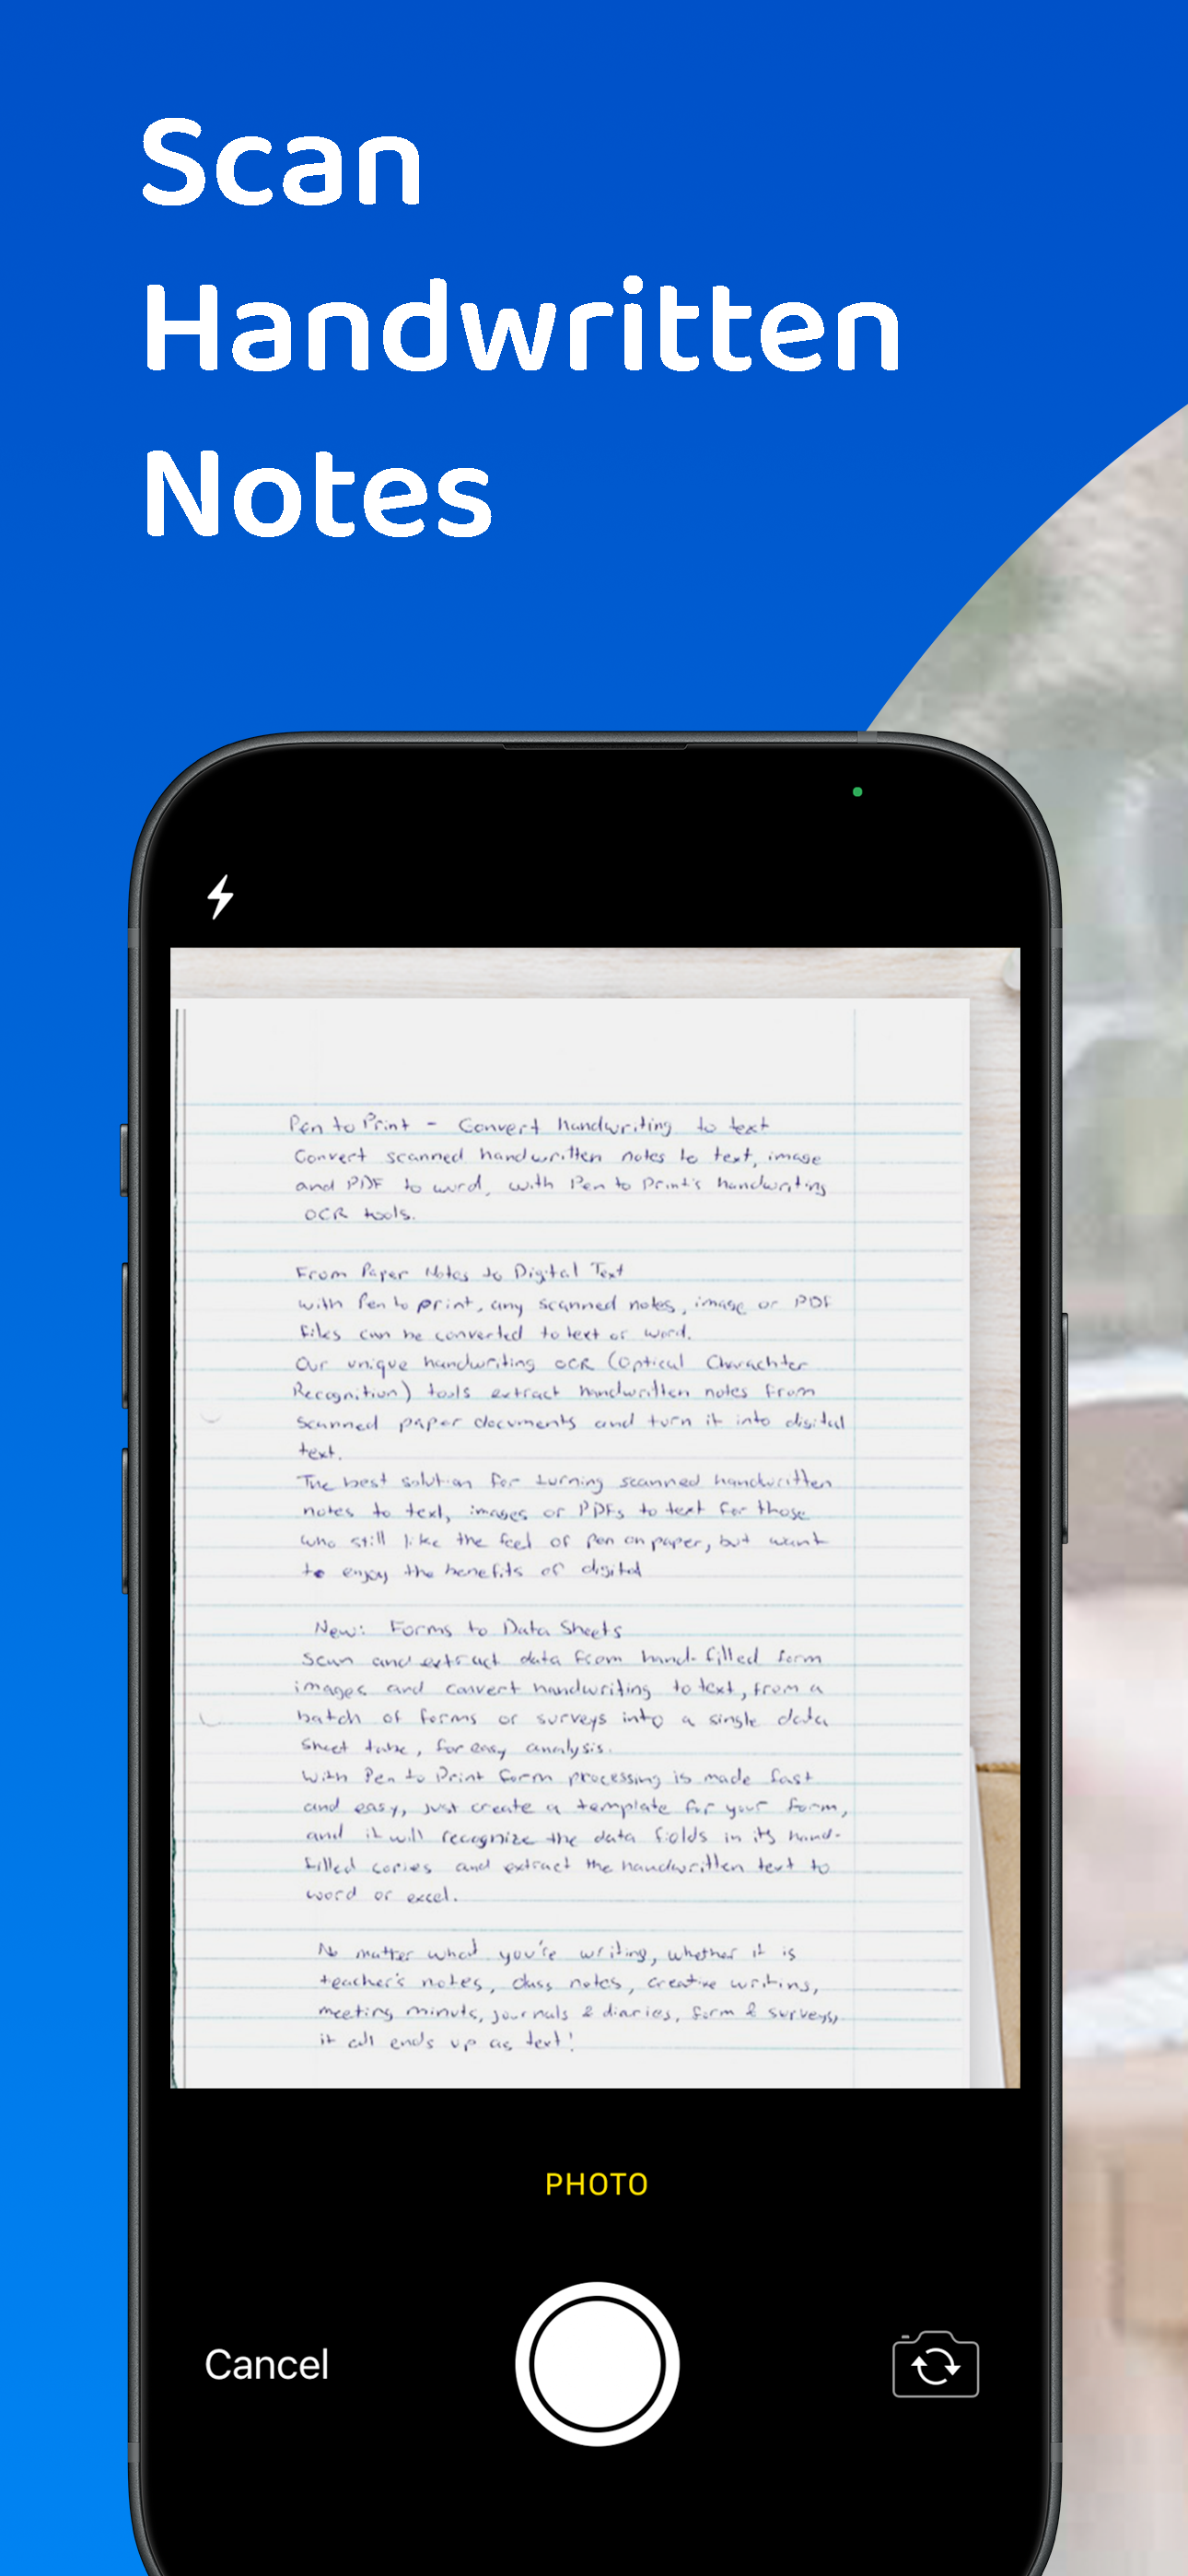 Scan
Handwritten
Notes
Pen to Print - Convert handwriting to text
Convert scanned handwritten notes to text, image
and PDF to word, with Pen to Print's handwriting
OCR tools.
From Paper Notes to Digital Text
with Pen to print, any scanned notes, image or PDF
files can be converted to text or word.
Our unique handwriting OCR (Optical Charachter
Recognition) tools extract handwritten notes from
scanned paper documents and turn it into digital
text.
The best solution for turning scanned handwritten
notes to text, images or PDFs to text for those
who still like the feel of pen on paper, but want
to enjoy the benefits of digital
New: Forms to Data Sheets
Scan and extract data from hand-filled form
images and convert handwriting to text, from a
batch of forms or surveys into a single data
sheet table, for easy analysis.
With Pen to Print form processing is made fast
and easy, just create a template for your form,
and it will recognize the data fields in its hand-
filled copies and extract the handwritten text to
word or excel.
No matter what you're writing, whether it is
teacher's notes, class notes, creative writing,
meeting minuts, journals & diaries, form & surveys,
it all ends up as text!
PHOTO
Cancel